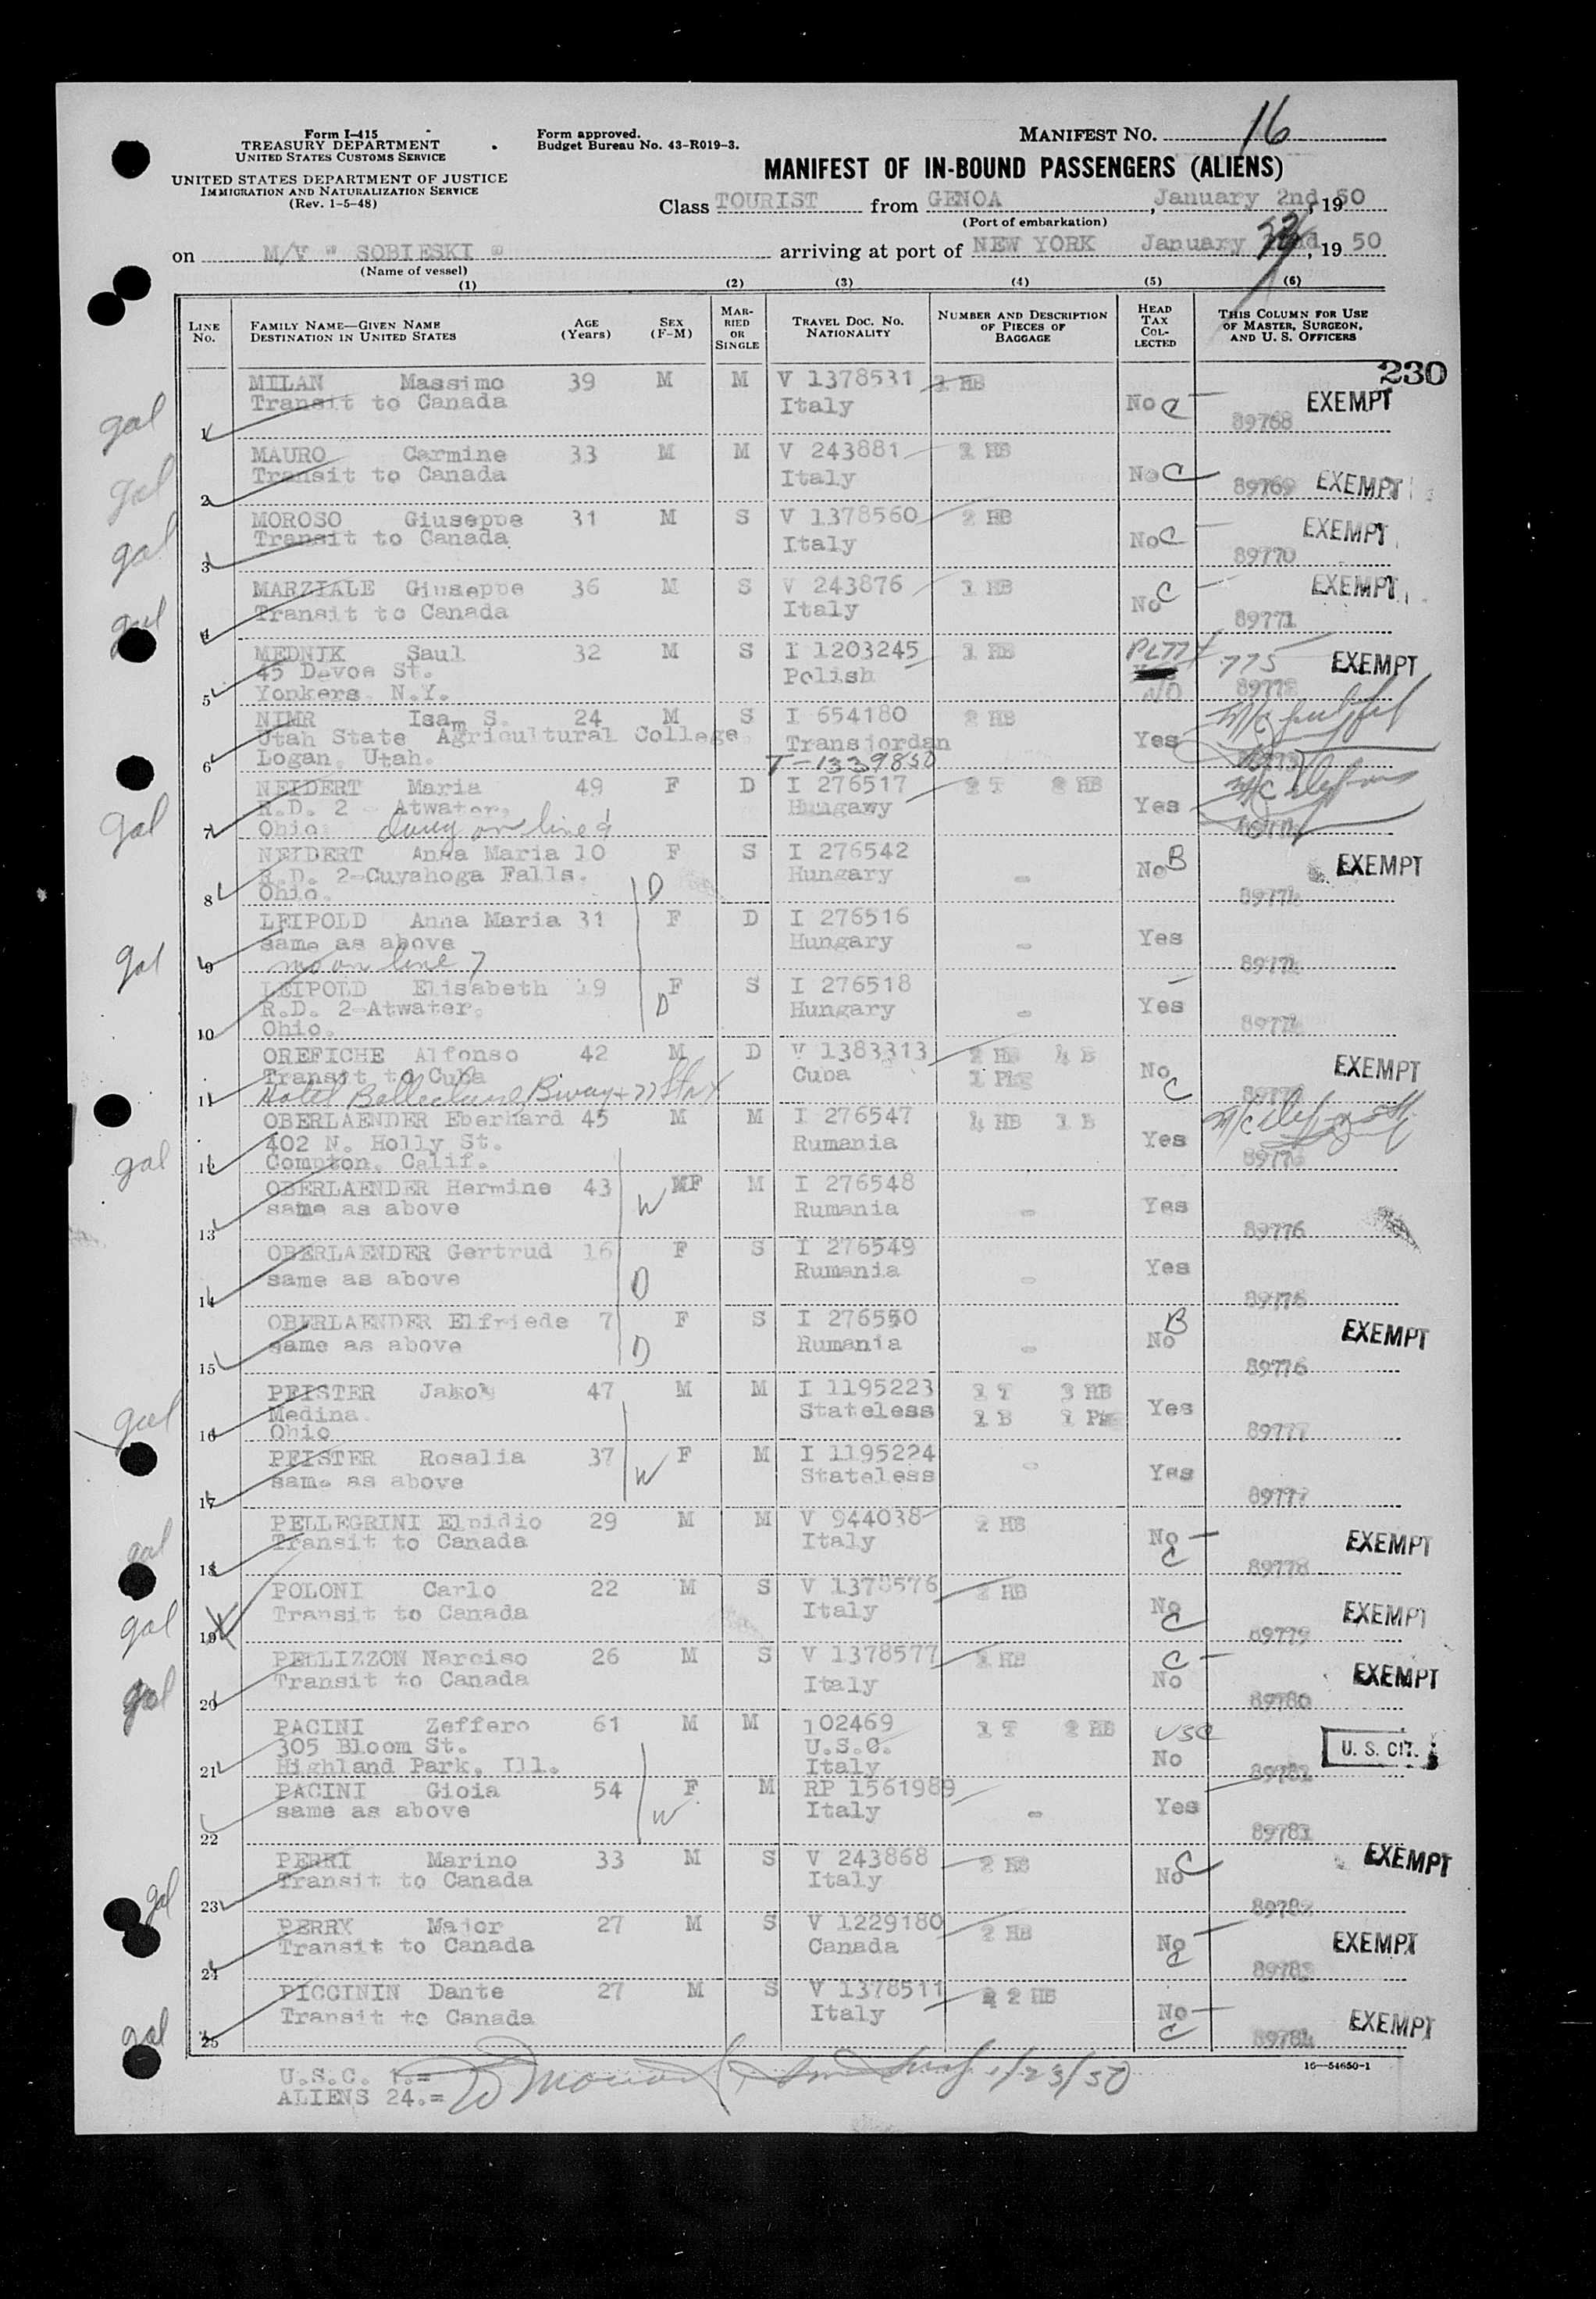 Form I-415
TREASURY DEPARTMENT
UNITED STATES CUSTOMS SERVICE
UNITED STATES DEPARTMENT OF JUSTICE
IMMIGRATION AND NATURALIZATION SERVICE
(Rev. 1-5-48)
Form approved.
Budget Bureau No. 43-R019-3.
MANIFEST NO. 16
MANIFEST OF IN-BOUND PASSENGERS (ALIENS)
Class TOURIST from GENOA, January 2nd, 1950
(Port of embarkation)
on M/V " SOBIESKI " arriving at port of NEW YORK January 23, 1950
(Name of vessel)
(1) (2) (3) (4) (5) (6)
LINE No. FAMILY NAME—GIVEN NAME DESTINATION IN UNITED STATES AGE (Years) SEX (F-M) MARRIED OR SINGLE TRAVEL DOC. NO. NATIONALITY NUMBER AND DESCRIPTION OF PIECES OF BAGGAGE HEAD TAX COLLECTED THIS COLUMN FOR USE OF MASTER, SURGEON, AND U. S. OFFICERS
230
MILAN Massimo 39 M M V 1378531 1 HB
gal 1 Transit to Canada Italy No C 89768 EXEMPT
MAURO Carmine 33 M M V 243881 2 HB
gal 2 Transit to Canada Italy No C 89769 EXEMPT
MOROSO Giuseppe 31 M S V 1378560 2 HB
gal 3 Transit to Canada Italy No C 89770 EXEMPT
MARZIALE Giuseppe 36 M S V 243876 1 HB
gal 4 Transit to Canada Italy No C 89771 EXEMPT
MEDNIK Saul 32 M S I 1203245 1 HB
45 Devoe St. Polish 775 EXEMPT
5 Yonkers, N.Y. NO
NIMR Isam S. 24 M S I 654180 2 HB
Utah State Agricultural College Transjordan Yes
6 Logan, Utah. T-1339850
NEIDERT Maria 49 F D I 276517 2 T 2 HB
R.D. 2 - Atwater, Hungawy Yes
gal 7 Ohio
NEIDERT Anna Maria 10 F S I 276542
R.D. 2-Cuyahoga Falls. D Hungary - No B EXEMPT
8 Ohio. 89774
LEIPOLD Anna Maria 31 F D I 276516
same as above Hungary - Yes
gal 9 mo on line 7 89774
LEIPOLD Elisabeth 19 F S I 276518
R.D. 2-Atwater, D Hungary - Yes
10 Ohio. 89774
OREFICHE Alfonso 42 M D V 1383313 2 HB 4 B
Transit to Cuba Cuba 1 Pkg No C EXEMPT
11 Hotel
OBERLAENDER Eberhard 45 M M I 276547 4 HB 1 B
402 N. Holly St. Rumania Yes
gal 12 Compton, Calif. 89776
OBERLAENDER Hermine 43 W MF M I 276548
13 same as above Rumania - Yes 89776
OBERLAENDER Gertrud 16 F S I 276549
14 same as above D Rumania - Yes 89776
OBERLAENDER Elfriede 7 F S I 276550
15 same as above D Rumania - No B 89776 EXEMPT
PFISTER Jakob 47 M M I 1195223 1 T 3 HB
Medina Stateless 1 B 1 Pkg Yes
gal 16 Ohio 89777
PFISTER Rosalia 37 W F M I 1195224
17 same as above Stateless - Yes 89777
PELLEGRINI Elpidio 29 M M V 944038 2 HB
gal 18 Transit to Canada Italy No C 89778 EXEMPT
POLONI Carlo 22 M S V 1378576 2 HB
gal 19 Transit to Canada Italy No C 89779 EXEMPT
PELLIZZON Narciso 26 M S V 1378577 1 HB
gal 20 Transit to Canada Italy No C 89780 EXEMPT
PACINI Zeffero 61 M M 102469 1 T 2 HB USC
305 Bloom St. U.S.C. No U. S. CIT.
21 Highland Park, Ill. Italy 89781
PACINI Gioia 54 W F M RP 1561989
22 same as above Italy - Yes 89781
PERRI Marino 33 M S V 243868 2 HB
gal 23 Transit to Canada Italy No C 89782 EXEMPT
PERRY Major 27 M S V 1229180 2 HB
24 Transit to Canada Canada No C 89783 EXEMPT
PICCININ Dante 27 M S V 1378511 2 HB
gal 25 Transit to Canada Italy No C 89784 EXEMPT
16—54650-1
U.S.C. 1.=
ALIENS 24.= 1/23/50